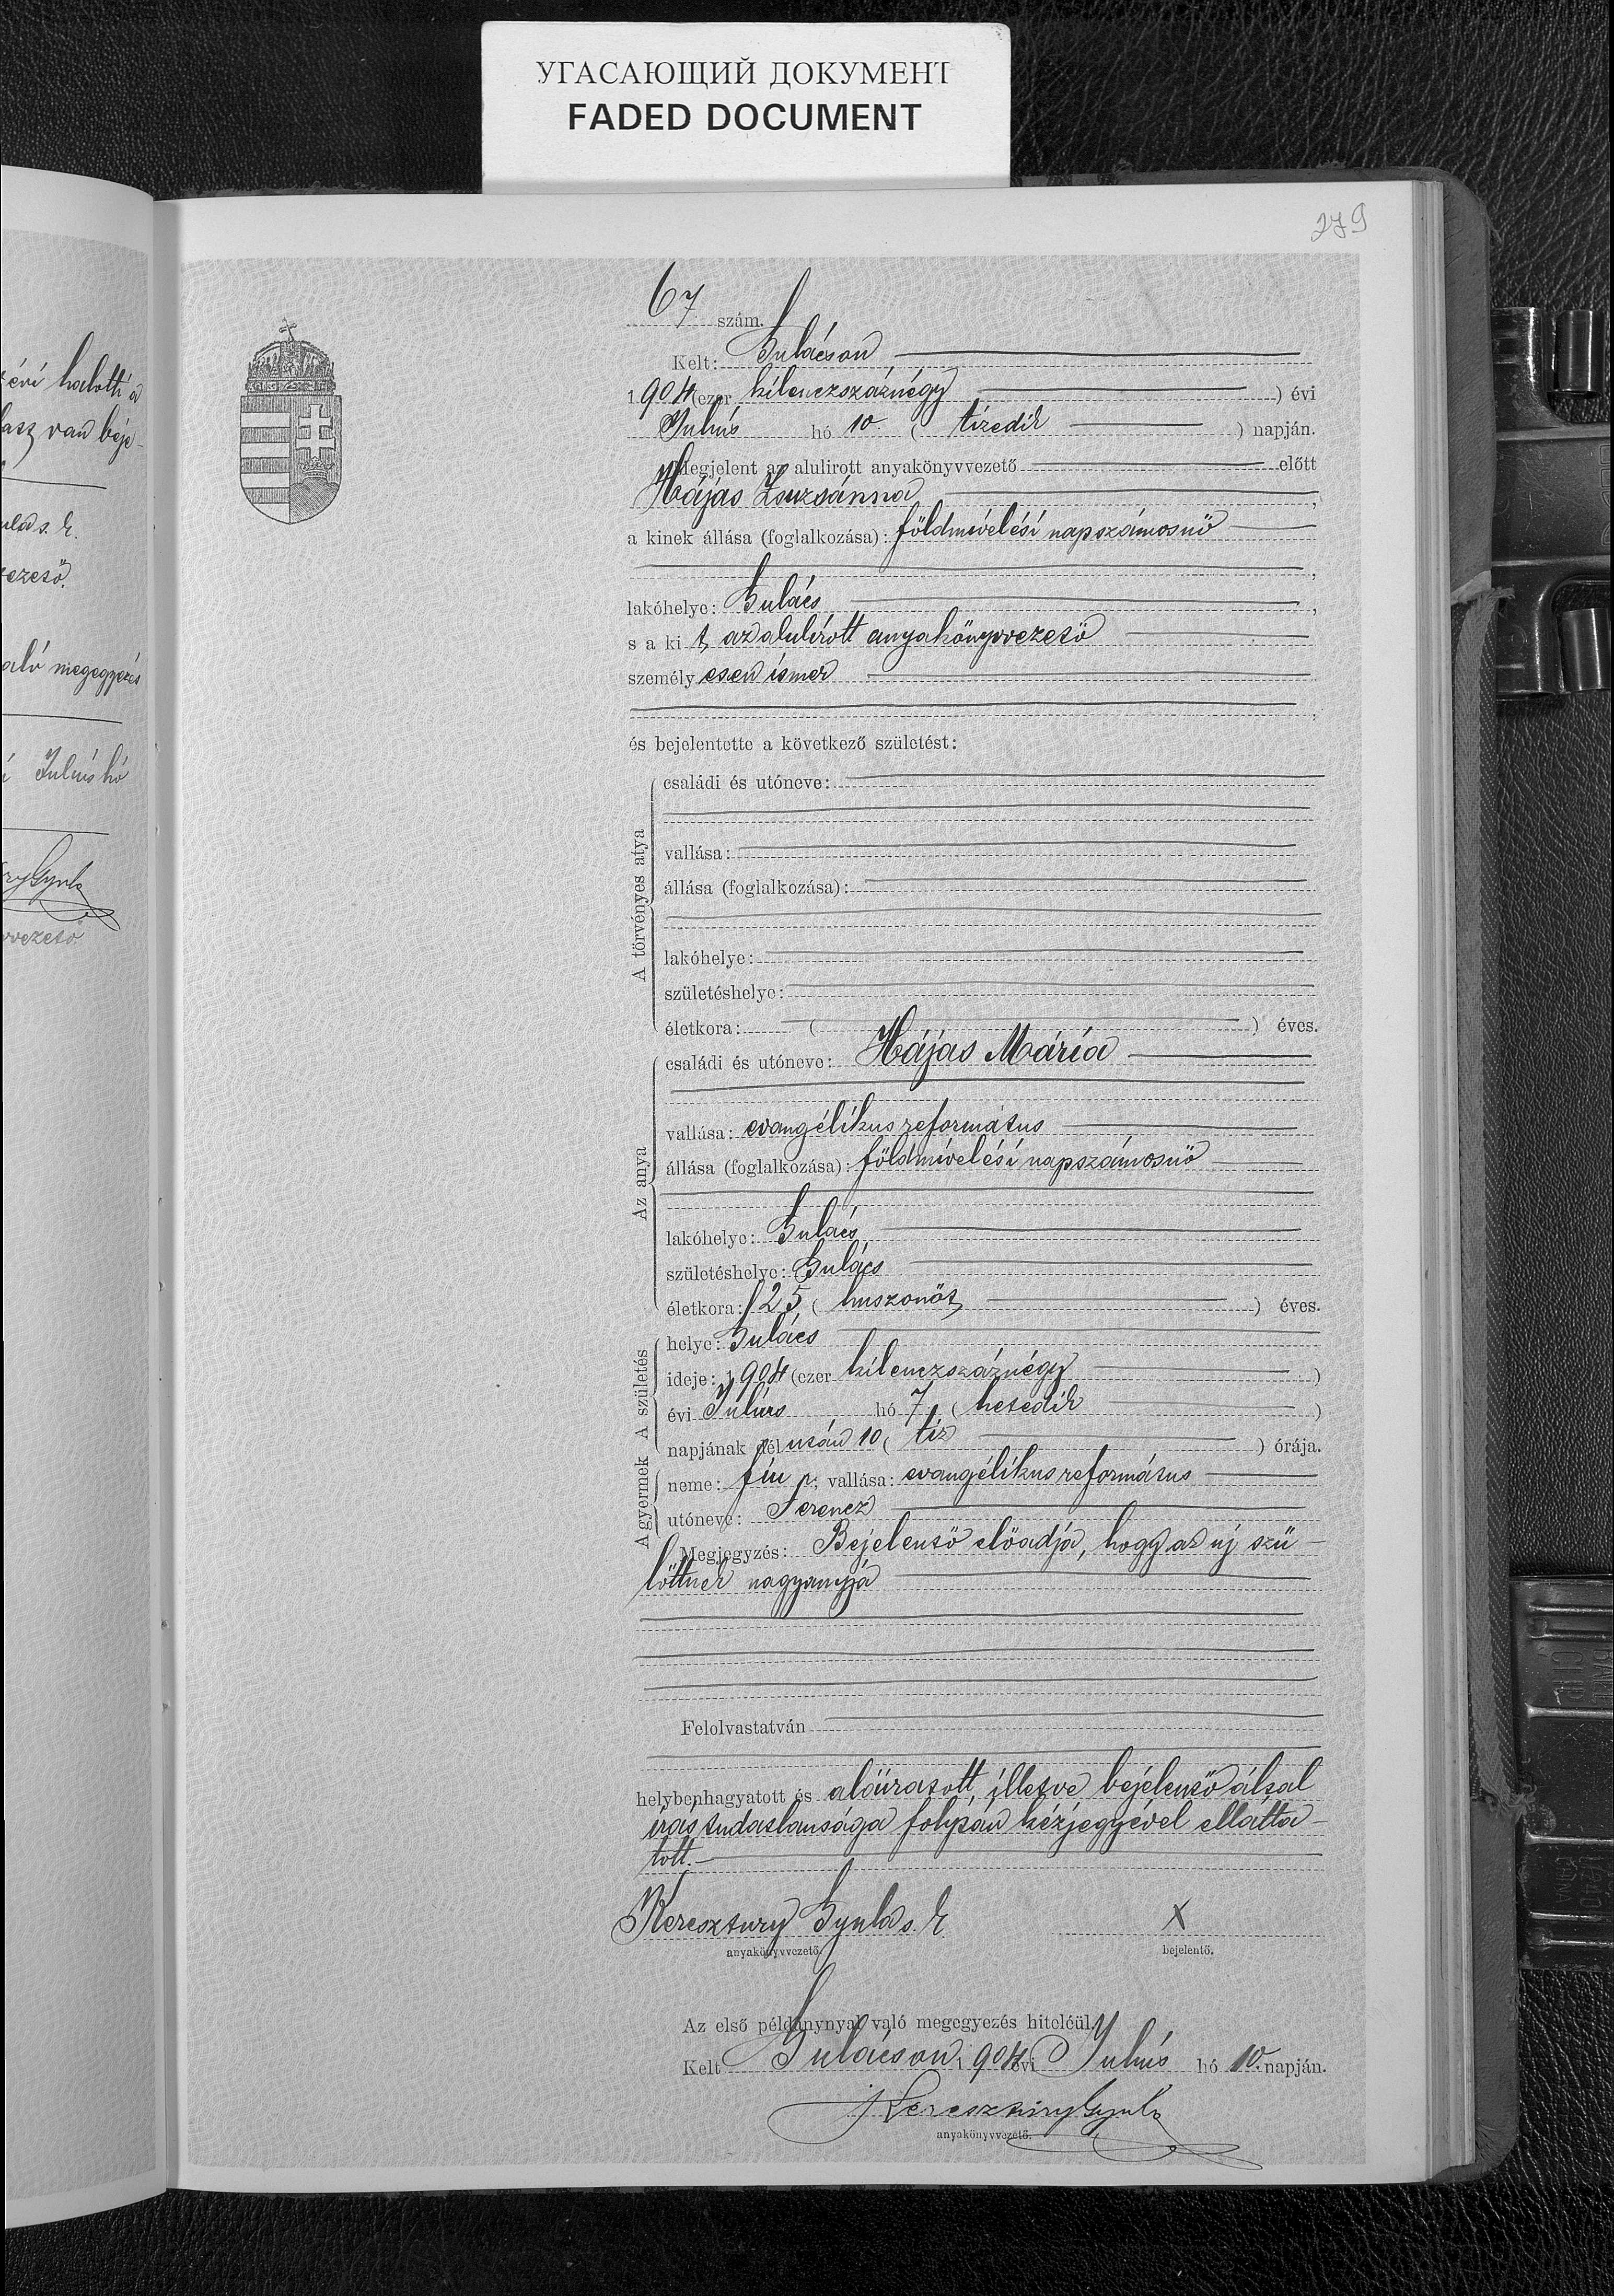 УГАСАЮЩИЙ ДОКУМЕНТ
FADED DOCUMENT
279
67 szám.
Kelt: Gulácson
1904 (ezer kilenczszáznégy ) évi
Julius hó 10 ( tizedik ) napján.
Megjelent az alulirott anyakönyvvezető előtt
Hájas Zsuzsánna ,
a kinek állása (foglalkozása): földmivelési napszámosnő
,
lakóhelye: Gulács ,
s a ki t az alulirott anyakönyvvezető
személyesen ismer
,
és bejelentette a következő születést:
A törvényes atya
családi és utóneve:
vallása:
állása (foglalkozása):
lakóhelye:
születéshelye:
életkora: ( ) éves.
Az anya
családi és utóneve: Hájas Mária
vallása: evangélikus református
állása (foglalkozása): földmivelési napszámosnő
lakóhelye: Gulács
születéshelye: Gulács
életkora: 25 ( huszonöt ) éves.
A születés
helye: Gulács
ideje: 1904 (ezer kilenczszáznégy )
évi Julius hó 7 ( hetedik )
napjának dél után 10 ( tiz ) órája.
A gyermek
neme: fiu ; vallása: evangélikus református
utóneve: Ferencz
Megjegyzés: Bejelentő előadja, hogy az új szü-
löttnek nagyanyja
Felolvastatván
helybenhagyatott és aláiratott, illetve bejelentő által
irástudatlansága folytán kézjegyével ellátta-
tott.
Keresztury Gyula s. k.
anyakönyvvezető.
X
bejelentő.
Az első példánynyal való megegyezés hiteléül.
Kelt Gulácson 1904 évi Julius hó 10. napján.
Keresztury Gyula
anyakönyvvezető.
évi halotti a
van beje-
ula s. k.
vezető.
aló megegyezés
i Julius hó
ry Gyula
vvezető